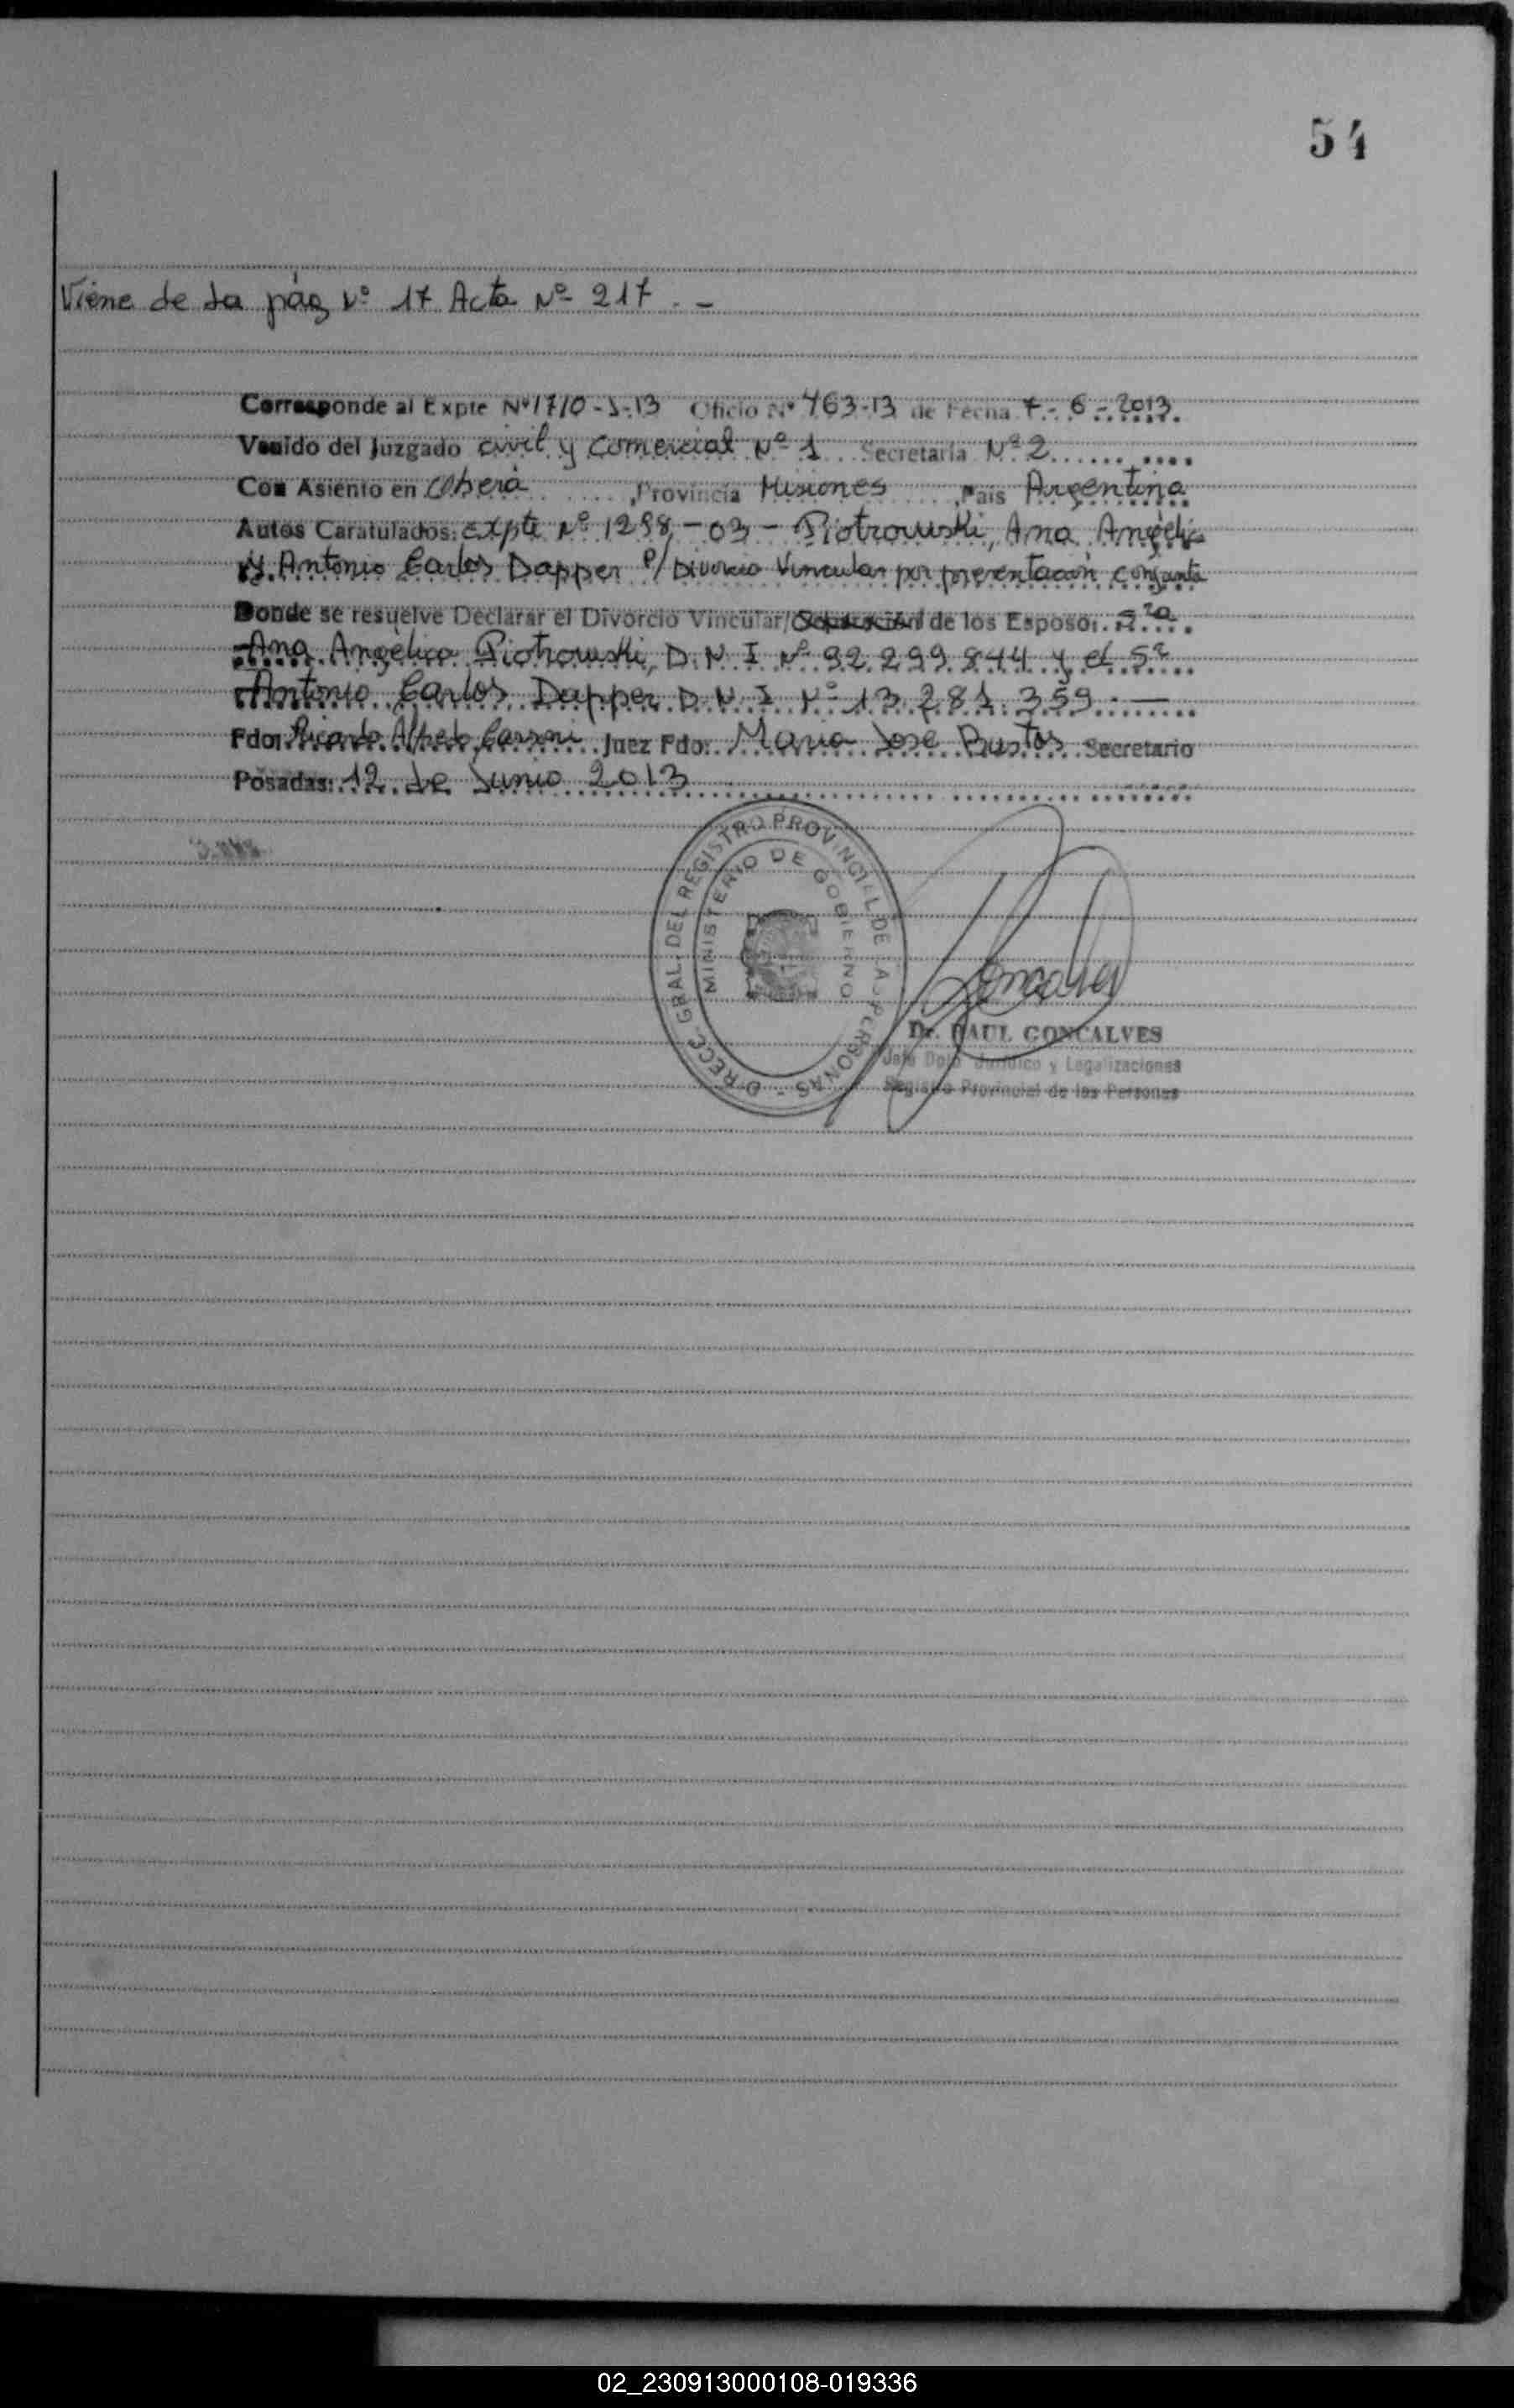 54
Viene de la pág Nº 17 Acta Nº 217 . -
Corresponde al Expte Nº 1710 - J - 13 Oficio Nº 463-13 de Fecha 7 - 6 - 2013.
Venido del Juzgado civil y Comercial Nº 1 Secretaría Nº 2
Con Asiento en Oberá , Provincia Misiones , País Argentina
Autos Caratulados: expte Nº 1298 - 03 - Piotrowski, Ana Angélica
y Antonio Carlos Dapper P/ Divorcio Vincular por presentación conjunta
Donde se resuelve Declarar el Divorcio Vincular/ de los Esposo: Sra
Ana Angélica Piotrowski, D.N.I Nº 92.299.844 y el Sr
Antonio Carlos Dapper D.N.I Nº 13.281.359. —
Fdo: Ricardo Alfredo Juez Fdo: Maria José Bustos Secretario
Posadas: 12 de Junio 2013
DIRECC. GRAL. DEL REGISTRO PROVINCIAL DE LAS PERSONAS -
MINISTERIO DE GOBIERNO
Goncalves
Dr. RAUL GONCALVES
Jefe Dpto Jurídico y Legalizaciones
Registro Provincial de las Personas
02_230913000108-019336